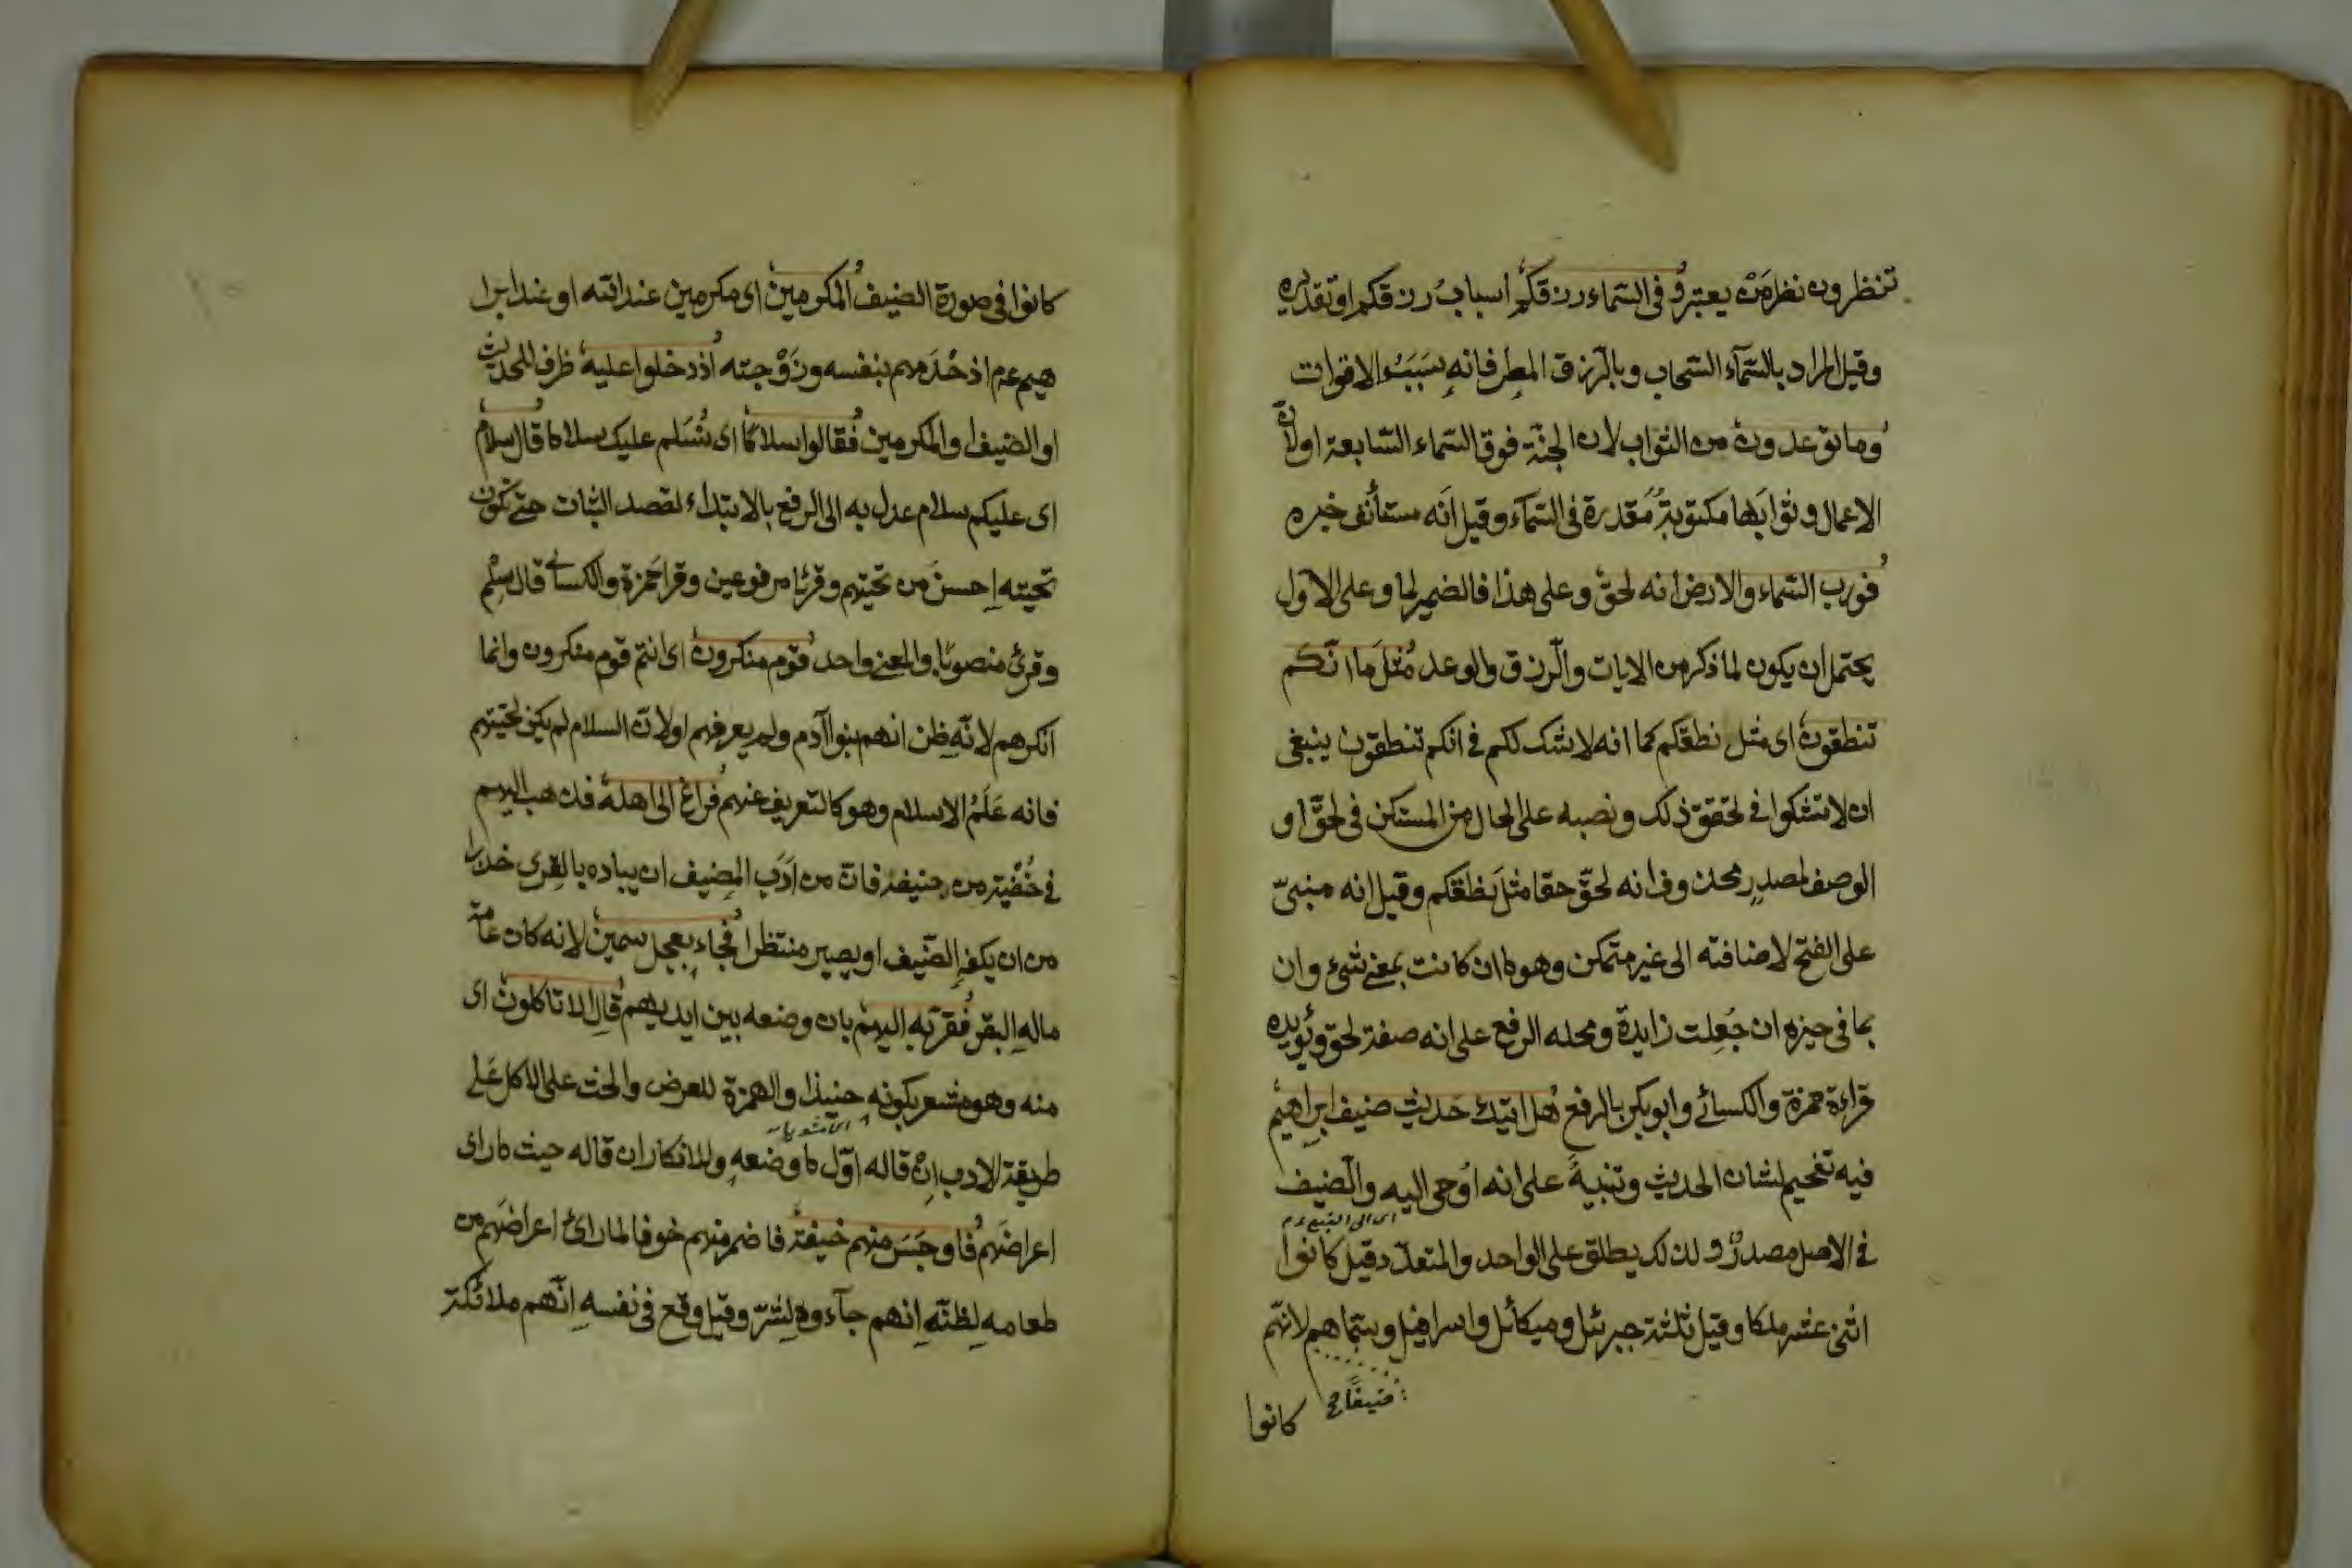 تنظرون نظر من يعتبر وفى السماء رزقكم اسباب رزقكم او تقديره
وقيل المراد بالسمآء السحاب وبالرزق المطر فانه سبب الاقوات
وما توعدون من الثواب لان الجنة فوق السماء السابعة او لان
الاعمال وثوابها مكتوبة مقدرة فى السمآء وقيل انه مستأنف خبره
فورب السماء والارض انه لحق وعلى هذا فالضمير لما وعلى الاول
يحتمل ان يكون لما ذكر من الايات والرزق والوعد مثل ما انكم
تنطقون اى مثل نطقكم كما انه لا شك لكم فى انكم تنطقون ينبغى
ان لا تشكوا فى تحقق ذلك ونصبه على الحال من المستكن فى لحق او
الوصف لمصدر محذوف انه لحق حقا مثل نطقكم وقيل انه مبنى
على الفتح لاضافته الى غير متمكن وهو ما ان كانت بمعنى شىء وان
بما فى حيزه ان جعلت زايدة ومحله الرفع على انه صفة لحق ويؤيده
قراءة حمزة والكسائے وابو بكر بالرفع هل اتيك حديث ضيف ابراهيم
فيه تفخيم لشان الحديث وتنبيه على انه اوحى اليه والضيف
اى الى النبى عم
فى الاصل مصدر ولذلك يطلق على الواحد والمتعدد قيل كانوا
اثنى عشر ملكا وقيل ثلثة جبرئيل وميكائل واسرافيل وسماهم لانهم
ضيفا صح
كانوا
كانوا فى صورة الضيف المكرمين اى مكرمين عند الله او عند ابرا
هيم عم اذ خدمهم بنفسه وزوجته اذ دخلوا عليه ظرف للحديث
او الضيف او المكرمين فقالوا سلاما اى نسلم عليك سلاما قال سلام
اى عليكم سلام عدل به الى الرفع بالابتداء لقصد الثبات حتى تكون
تحيته احسن من تحيتهم وقرئا مرفوعين وقرا حمزة والكسائے قال سلم
وقرئ منصوبا والمعنى واحد قوم منكرون اى انتم قوم منكرون وانما
انكرهم لانه ظن انهم بنوا آدم ولم يعرفهم او لان السلام لم يكن تحيتهم
فانه علم الاسلام وهو كالتعريف عنهم فراغ الى اهله فذهب اليهم
فى خفية من ضيفه فان من ادب المضيف ان يباده بالقرى حذرا
من ان يكفه الضيف او يصير منتظرا فجاء بعجل سمين لانه كان عامة
ماله البقر فقربه اليهم بان وضعه بين ايديهم قال الا تاكلون اى
منه وهو مشعر بكونه حنيذا والهمزة للعرض والحث على الاكل على
اى مشويا
طريقة الادب ان قاله اول ما وضعه وللانكار ان قاله حيث ما راى
اعراضهم فاوجس منهم خيفة فاضمر منهم خوفا لما راى اعراضهم من
طعامه لظنه انهم جآءوه لشر وقيل وقع فى نفسه انهم ملائكة